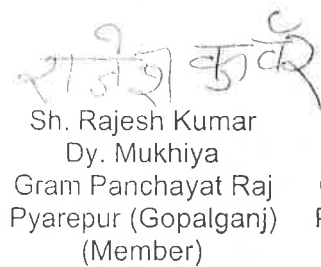 राजेश कुवँर
Sh. Rajesh Kumar
Dy. Mukhiya
Gram Panchayat Raj
Pyarepur (Gopalganj)
(Member)